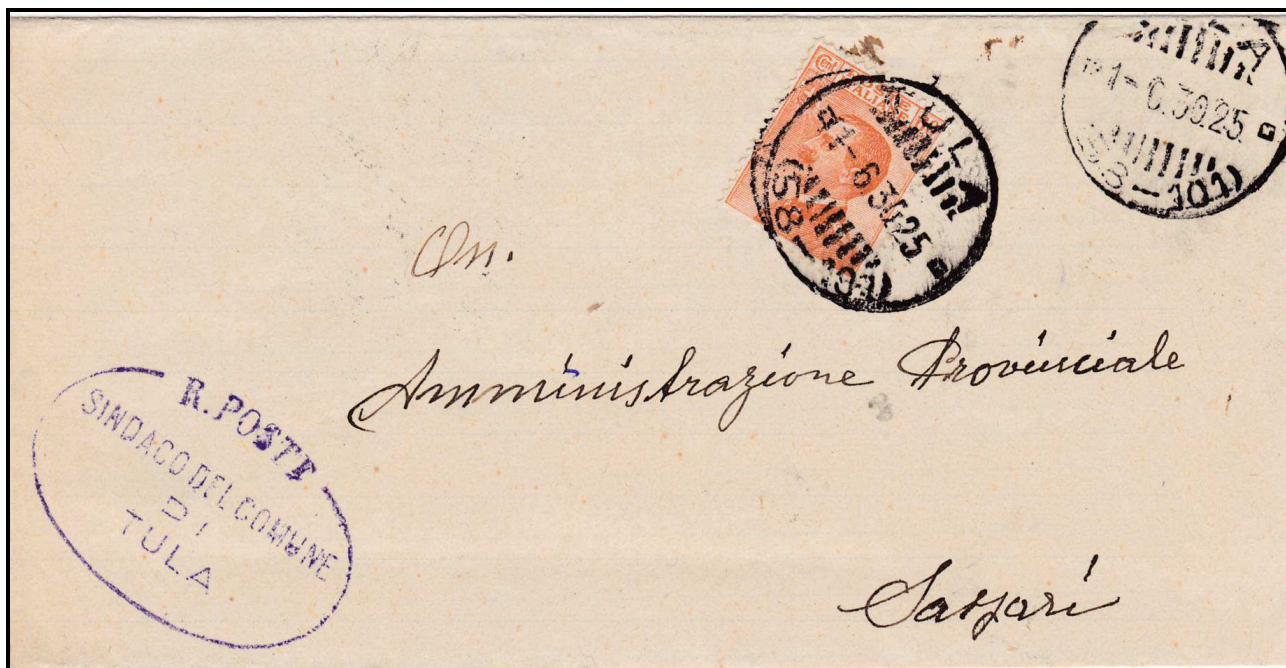 Cent POSTE
ITALIANE
TULA
1-6.30.25
(58-101)
1-6.30.25
(58-101)
On.
Amministrazione Provinciale
Sassari
R. POSTE
SINDACO DEL COMUNE
DI
TULA